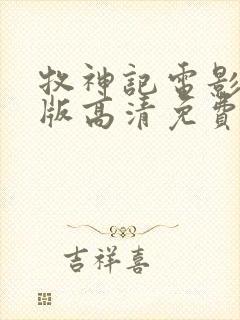 牧神記電影
版高清免費
吉祥喜